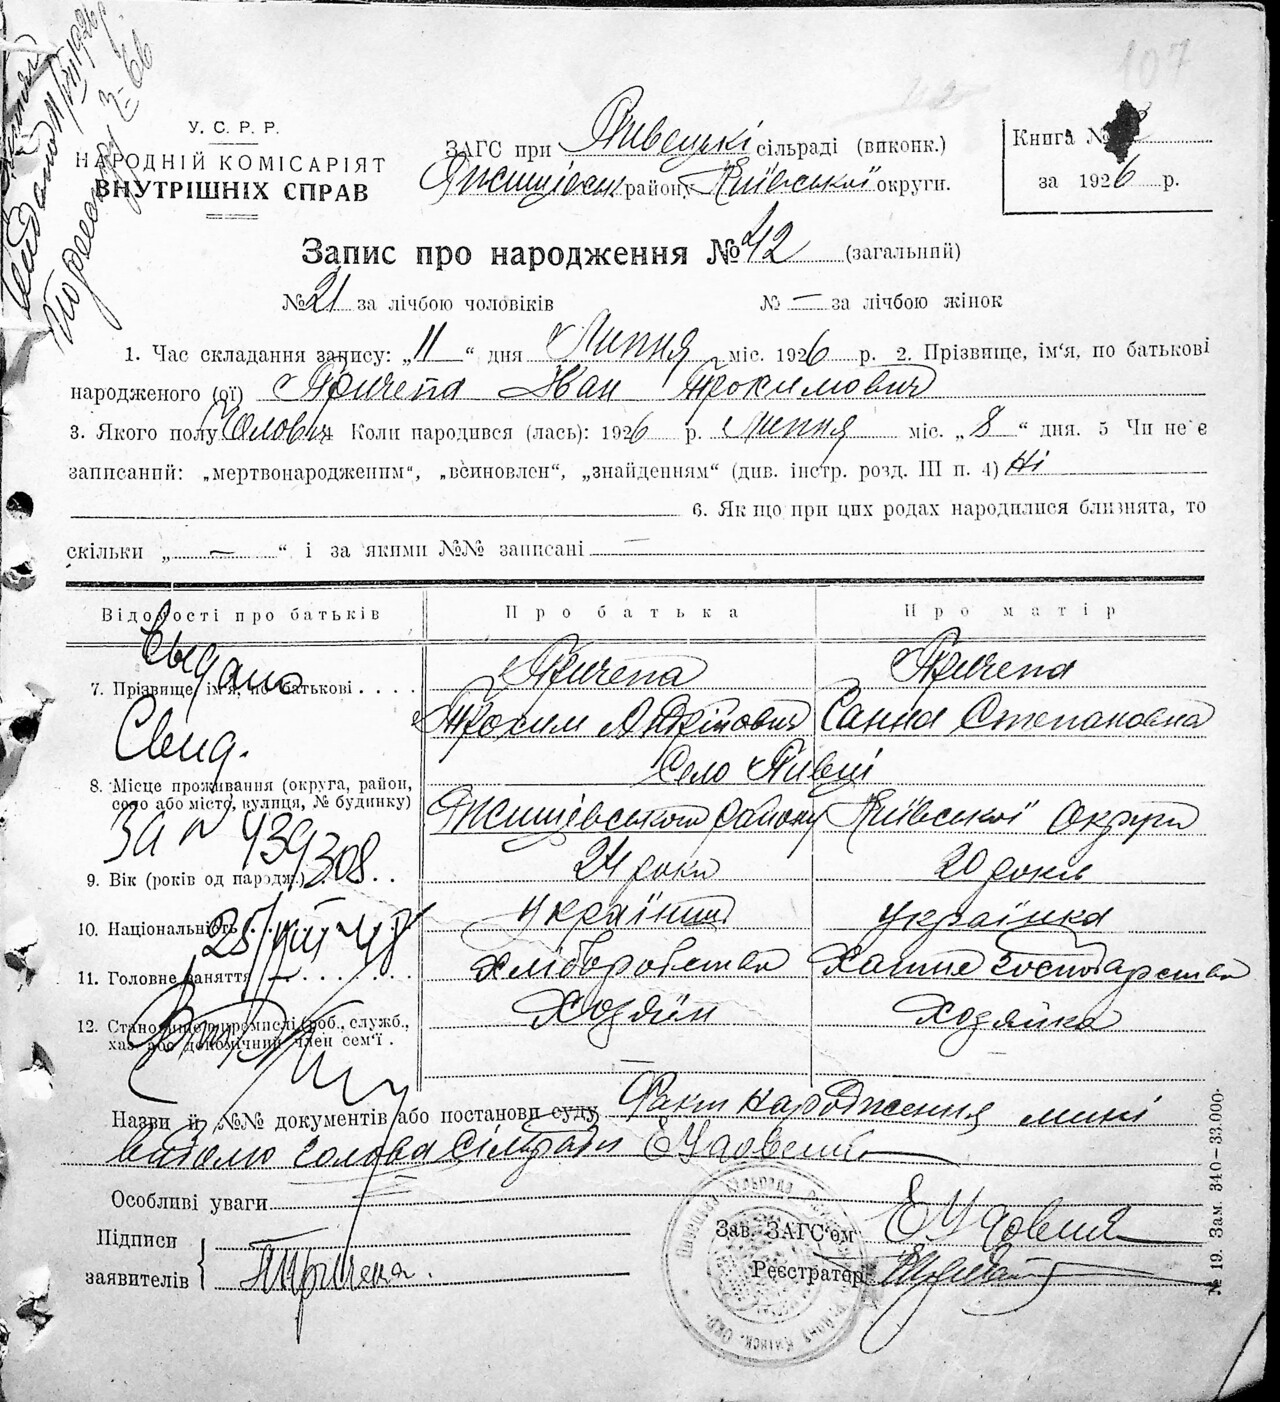 107
42
У. С. Р. Р.
НАРОДНІЙ КОМІСАРІЯТ
ВНУТРІШНІХ СПРАВ
ЗАГС при Пивецькі сільраді (виконк.)
району Київської округи.
Книга №
за 1926 р.
Запис про народження № 42 (загальний)
№ 21 за лічбою чоловіків № — за лічбою жінок
1. Час складання запису: „11“ дня Липня міс. 1926 р. 2. Прізвище, ім'я, по батькові
народженого (ої) Причепа Іван Трохимович
3. Якого полу Чоловіч 4 Коли народився (лась): 1926 р. Липня міс. „8“ дня. 5 Чи не є
записаний: „мертвонародженим“, „всиновлен“, „знайденням“ (див. інстр. розд. III п. 4) Ні
6. Якщо при цих родах народилися близнята, то
скільки „ — “ і за якими №№ записані —
Відомості про батьків Про батька Про матір
Выдано
7. Прізвище, ім'я, по батькові . . . . Причепа Причепа
Трохим Андрійович Ганна Степановна
Свид.
Село Пивці
8. Місце проживання (округа, район,
село або місто, вулиця, № будинку) району Київської округи
За № 439308
9. Вік (років од народж.) 24 роки 20 років
10. Національність Українець українка
25/VIII 48
11. Головне заняття Хліборобство Хатнє господарство
12. Становище в промислі (роб., служб.,
хаз. або допомічний член сем'ї . Хозяїн Хозяйка
Назви й №№ документів або постанови суду Факт народження мині
відомо голова Сільради
Особливі уваги
Підписи
заявителів Причепа.
Зав. ЗАГС'ом
Реєстратор
№ 19. Зам. 340—33.000.